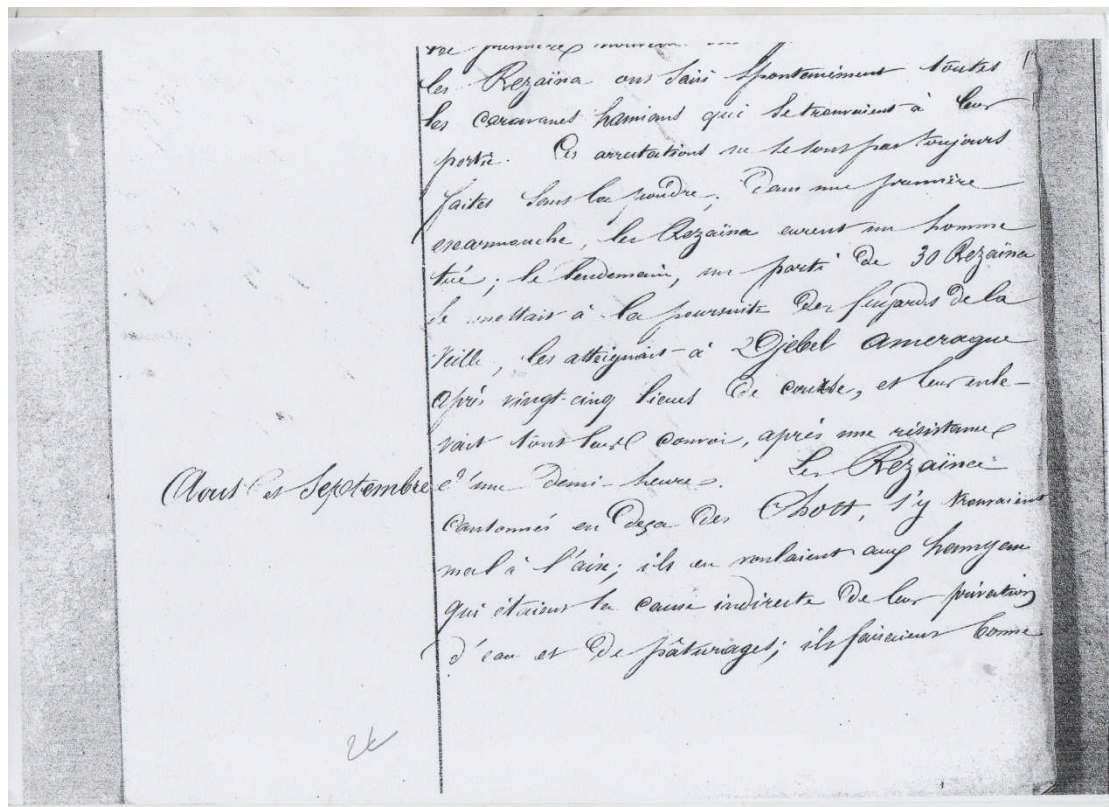 de première
les Rezaïna ont saisi spontanément toutes
les caravanes hamians qui se trouvaient à leur
portée. Ces arrestations ne se sont pas toujours
faites sans la poudre; Dans une première
escarmouche, les Rezaïna eurent un homme
tué; le lendemain, un parti de 30 Rezaïna
se mettait à la poursuite des fuyards de la
veille, les atteignait à Djebel Amerague
après vingt-cinq lieues de course, et leur enle-
vait tout leur convoi, après une résistance
Aout et Septembre d'une demi-heure. Les Rezaïna
cantonnés en deça des Chott, s'y trouvaient
mal à l'aise; ils en voulaient aux hamyans
qui étaient la cause indirecte de leur privation
d'eau et de pâturages; ils faisaient bonne